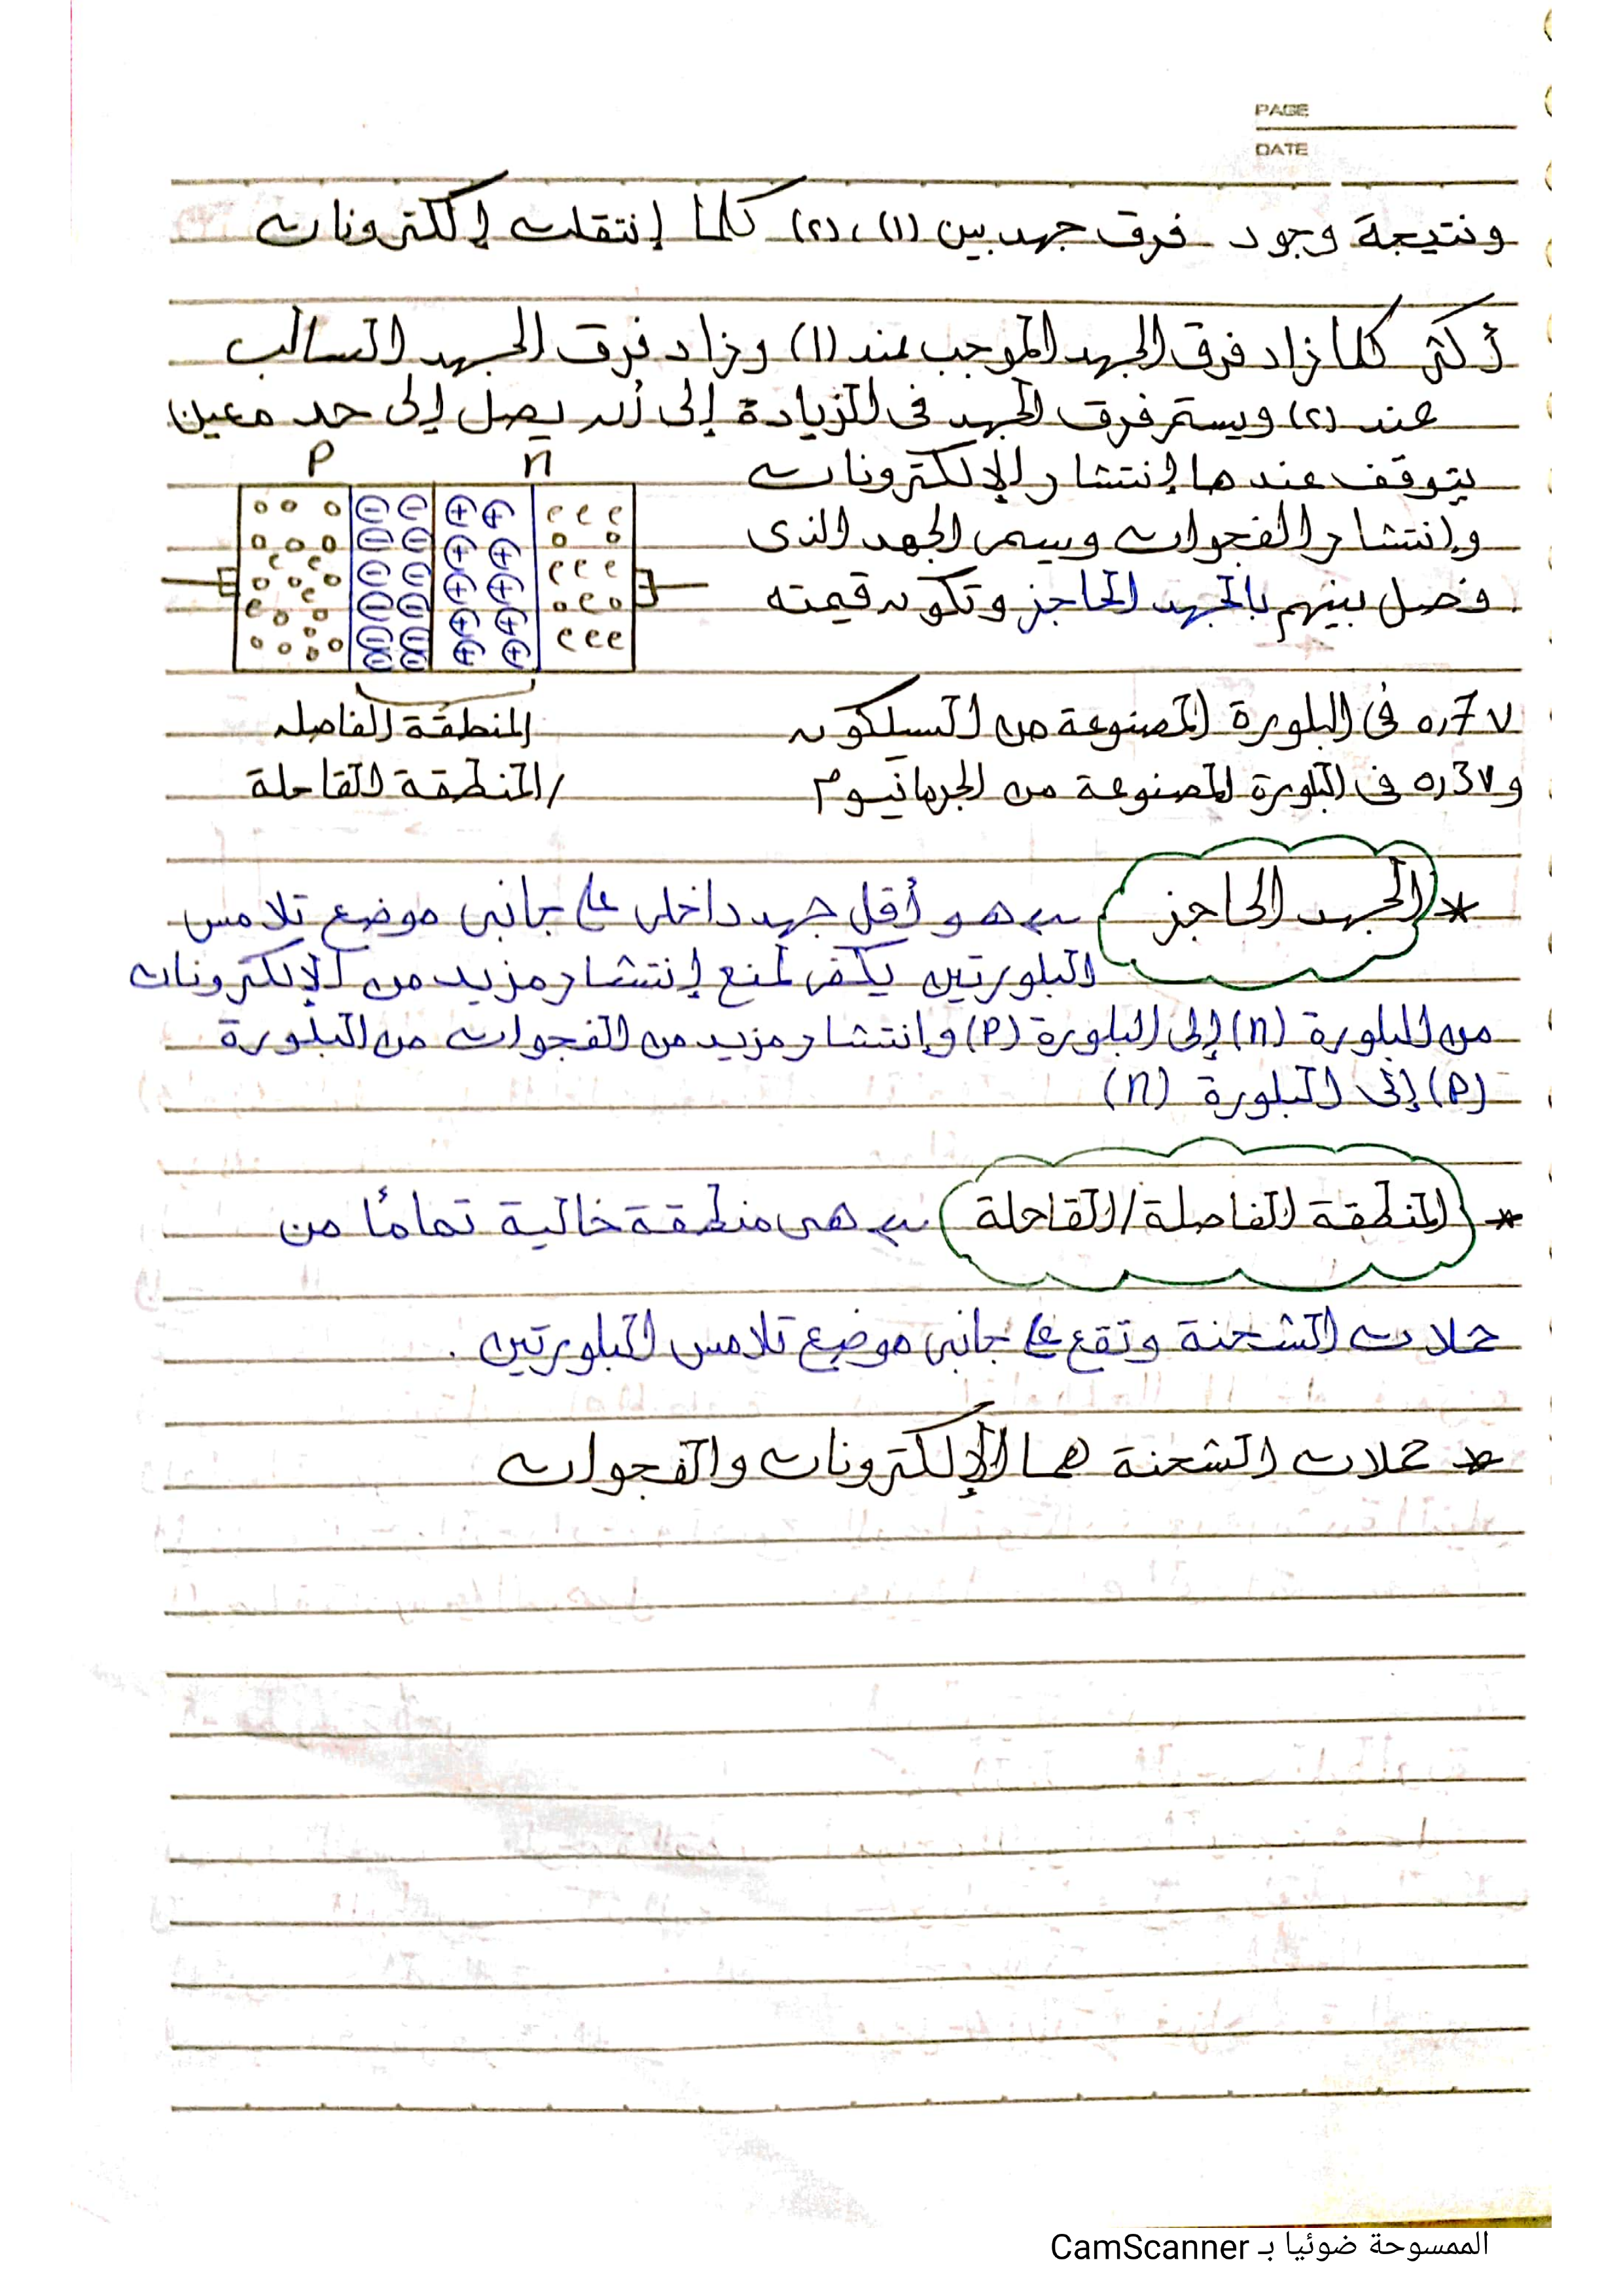 PAGE
DATE
ونتيجة وجود فرق جهد بين (١)، (٢) كلما إنتقلت إلكترونات
أكثر كلما زاد فرق الجهد الموجب عند (١) وزاد فرق الجهد السالب
عند (٢) ويستمر فرق الجهد فى الزيادة إلى أن يصل إلى حد معين
يتوقف عندها إنتشار الإلكترونات
وإنتشار الفجوات ويسمى الجهد الذى
فصل بينهم بالجهد الحاجز وتكون قيمته
P n
المنطقة الفاصله
/المنطقة القاحلة
0,7 v فى البلورة المصنوعة من السيلكون
و 0,3 v فى البلورة المصنوعة من الجرمانيوم
* الجهد الحاجز ← هو أقل جهد داخلى على جانبى موضع تلامس
البلورتين يكفى لمنع إنتشار مزيد من الإلكترونات
من البلورة (n) إلى البلورة (P) وإنتشار مزيد من الفجوات من البلورة
(P) إلى البلورة (n)
* المنطقة الفاصلة/القاحلة ← هى منطقة خالية تمامًا من
حملات الشحنة وتقع على جانبى موضع تلامس البلورتين .
* حملات الشحنة هما الإلكترونات والفجوات
الممسوحة ضوئيا بـ CamScanner